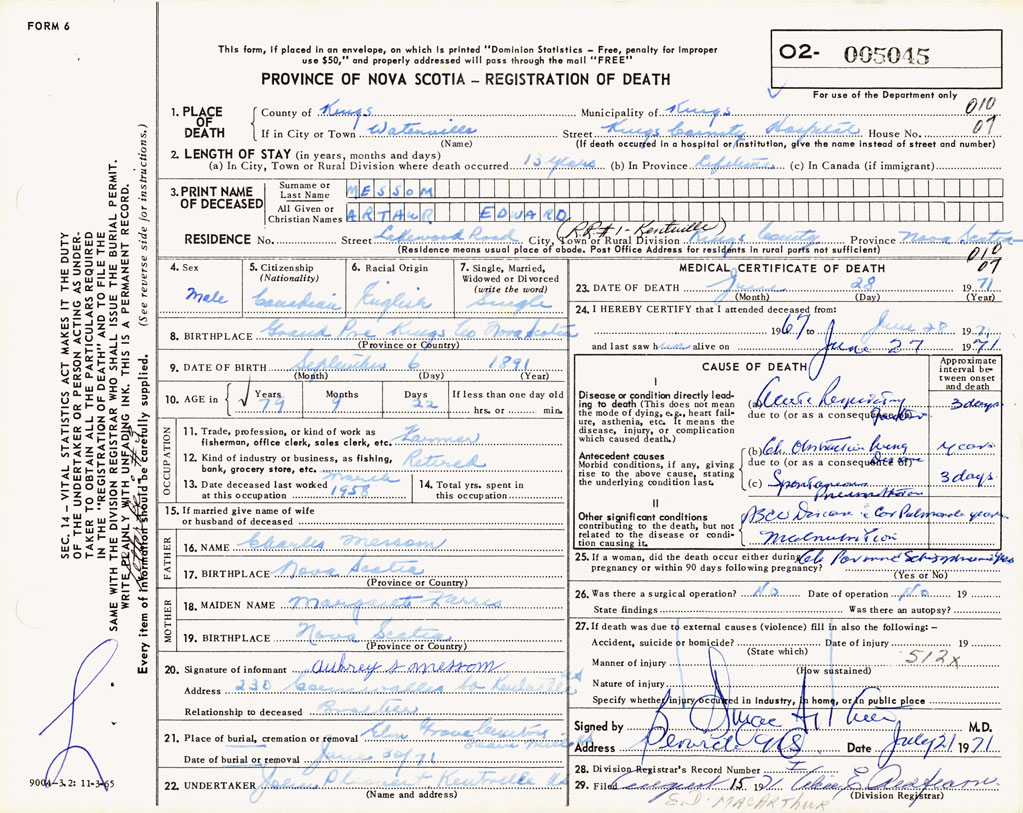 FORM 6
This form, if placed in an envelope, on which is printed "Dominion Statistics – Free, penalty for improper
use $50," and properly addressed will pass through the mail "FREE"
PROVINCE OF NOVA SCOTIA – REGISTRATION OF DEATH
O2- 005045
For use of the Department only
010
07
1. PLACE OF DEATH
County of Kings Municipality of Kings
If in City or Town Waterville Street Kings County Hospital House No.
(Name) (If death occurred in a hospital or institution, give the name instead of street and number)
2. LENGTH OF STAY (in years, months and days)
(a) In City, Town or Rural Division where death occurred 13 years (b) In Province Lifetime (c) In Canada (if immigrant)
3. PRINT NAME OF DECEASED
Surname or Last Name MESSOM
All Given or Christian Names ARTHUR EDWARD
(R.R.#1 - Kentville)
RESIDENCE No. Street Lakewood Road City, Town or Rural Division Kings County Province Nova Scotia
(Residence means usual place of abode. Post Office Address for residents in rural parts not sufficient)
010
07
4. Sex Male
5. Citizenship (Nationality) Canadian
6. Racial Origin English
7. Single, Married, Widowed or Divorced (write the word) Single
8. BIRTHPLACE Grand Pre Kings Co Nova Scotia
(Province or Country)
9. DATE OF BIRTH September 6 1891
(Month) (Day) (Year)
10. AGE in Years 79 Months 9 Days 22 If less than one day old hrs. or min.
OCCUPATION
11. Trade, profession, or kind of work as
fisherman, office clerk, sales clerk, etc. Farmer
12. Kind of industry or business, as fishing,
bank, grocery store, etc. Retired
13. Date deceased last worked at this occupation March 1958
14. Total yrs. spent in this occupation
15. If married give name of wife
or husband of deceased
FATHER
16. NAME Charles Messom
17. BIRTHPLACE Nova Scotia
(Province or Country)
MOTHER
18. MAIDEN NAME Margarett Harris
19. BIRTHPLACE Nova Scotia
(Province or Country)
20. Signature of informant Aubrey S Messom
Address 230 Cornwallis St Kentville NS
Relationship to deceased Brother
21. Place of burial, cremation or removal Elm Grove Cemetery
Date of burial or removal June 30/71
22. UNDERTAKER Kentville NS
(Name and address)
MEDICAL CERTIFICATE OF DEATH
23. DATE OF DEATH June 28 1971
(Month) (Day) (Year)
24. I HEREBY CERTIFY that I attended deceased from:
1967 to June 28 1971
and last saw him alive on June 27 1971
CAUSE OF DEATH
Approximate interval between onset and death
I
Disease or condition directly leading
to death (This does not mean
the mode of dying, e.g., heart failure,
asthenia, etc. It means the
disease, injury, or complication
which caused death.)
(a) Acute Respiratory 3 days
due to (or as a consequence of)
Antecedent causes
Morbid conditions, if any, giving
rise to the above cause, stating
the underlying condition last.
(b) Ch. Obstructive Lung Disease years
due to (or as a consequence of)
(c) Spontaneous Pneumothorax 3 days
II
Other significant conditions
contributing to the death, but not
related to the disease or condition
causing it.
Disease Cor Pulmonale years
Malnutrition
25. If a woman, did the death occur either during
pregnancy or within 90 days following pregnancy?
(Yes or No)
26. Was there a surgical operation? No Date of operation No 19
State findings Was there an autopsy?
27. If death was due to external causes (violence) fill in also the following: –
Accident, suicide or homicide? Date of injury 19
(State which)
512X
Manner of injury
(How sustained)
Nature of injury
Specify whether injury occurred in industry, in home, or in public place
Signed by M.D.
Address Berwick NS Date July 21 1971
28. Division Registrar's Record Number
29. Filed August 15 1971
(Division Registrar)
E.D. MACARTHUR
SEC. 14 – VITAL STATISTICS ACT MAKES IT THE DUTY
OF THE UNDERTAKER OR PERSON ACTING AS UNDERTAKER
TO OBTAIN ALL THE PARTICULARS REQUIRED
IN THE "REGISTRATION OF DEATH" AND TO FILE THE
SAME WITH THE DIVISION REGISTRAR WHO SHALL ISSUE THE BURIAL PERMIT.
WRITE PLAINLY WITH UNFADING INK. THIS IS A PERMANENT RECORD.
Every item of information should be carefully supplied. (See reverse side for instructions.)
9004-3.2: 11-3-65